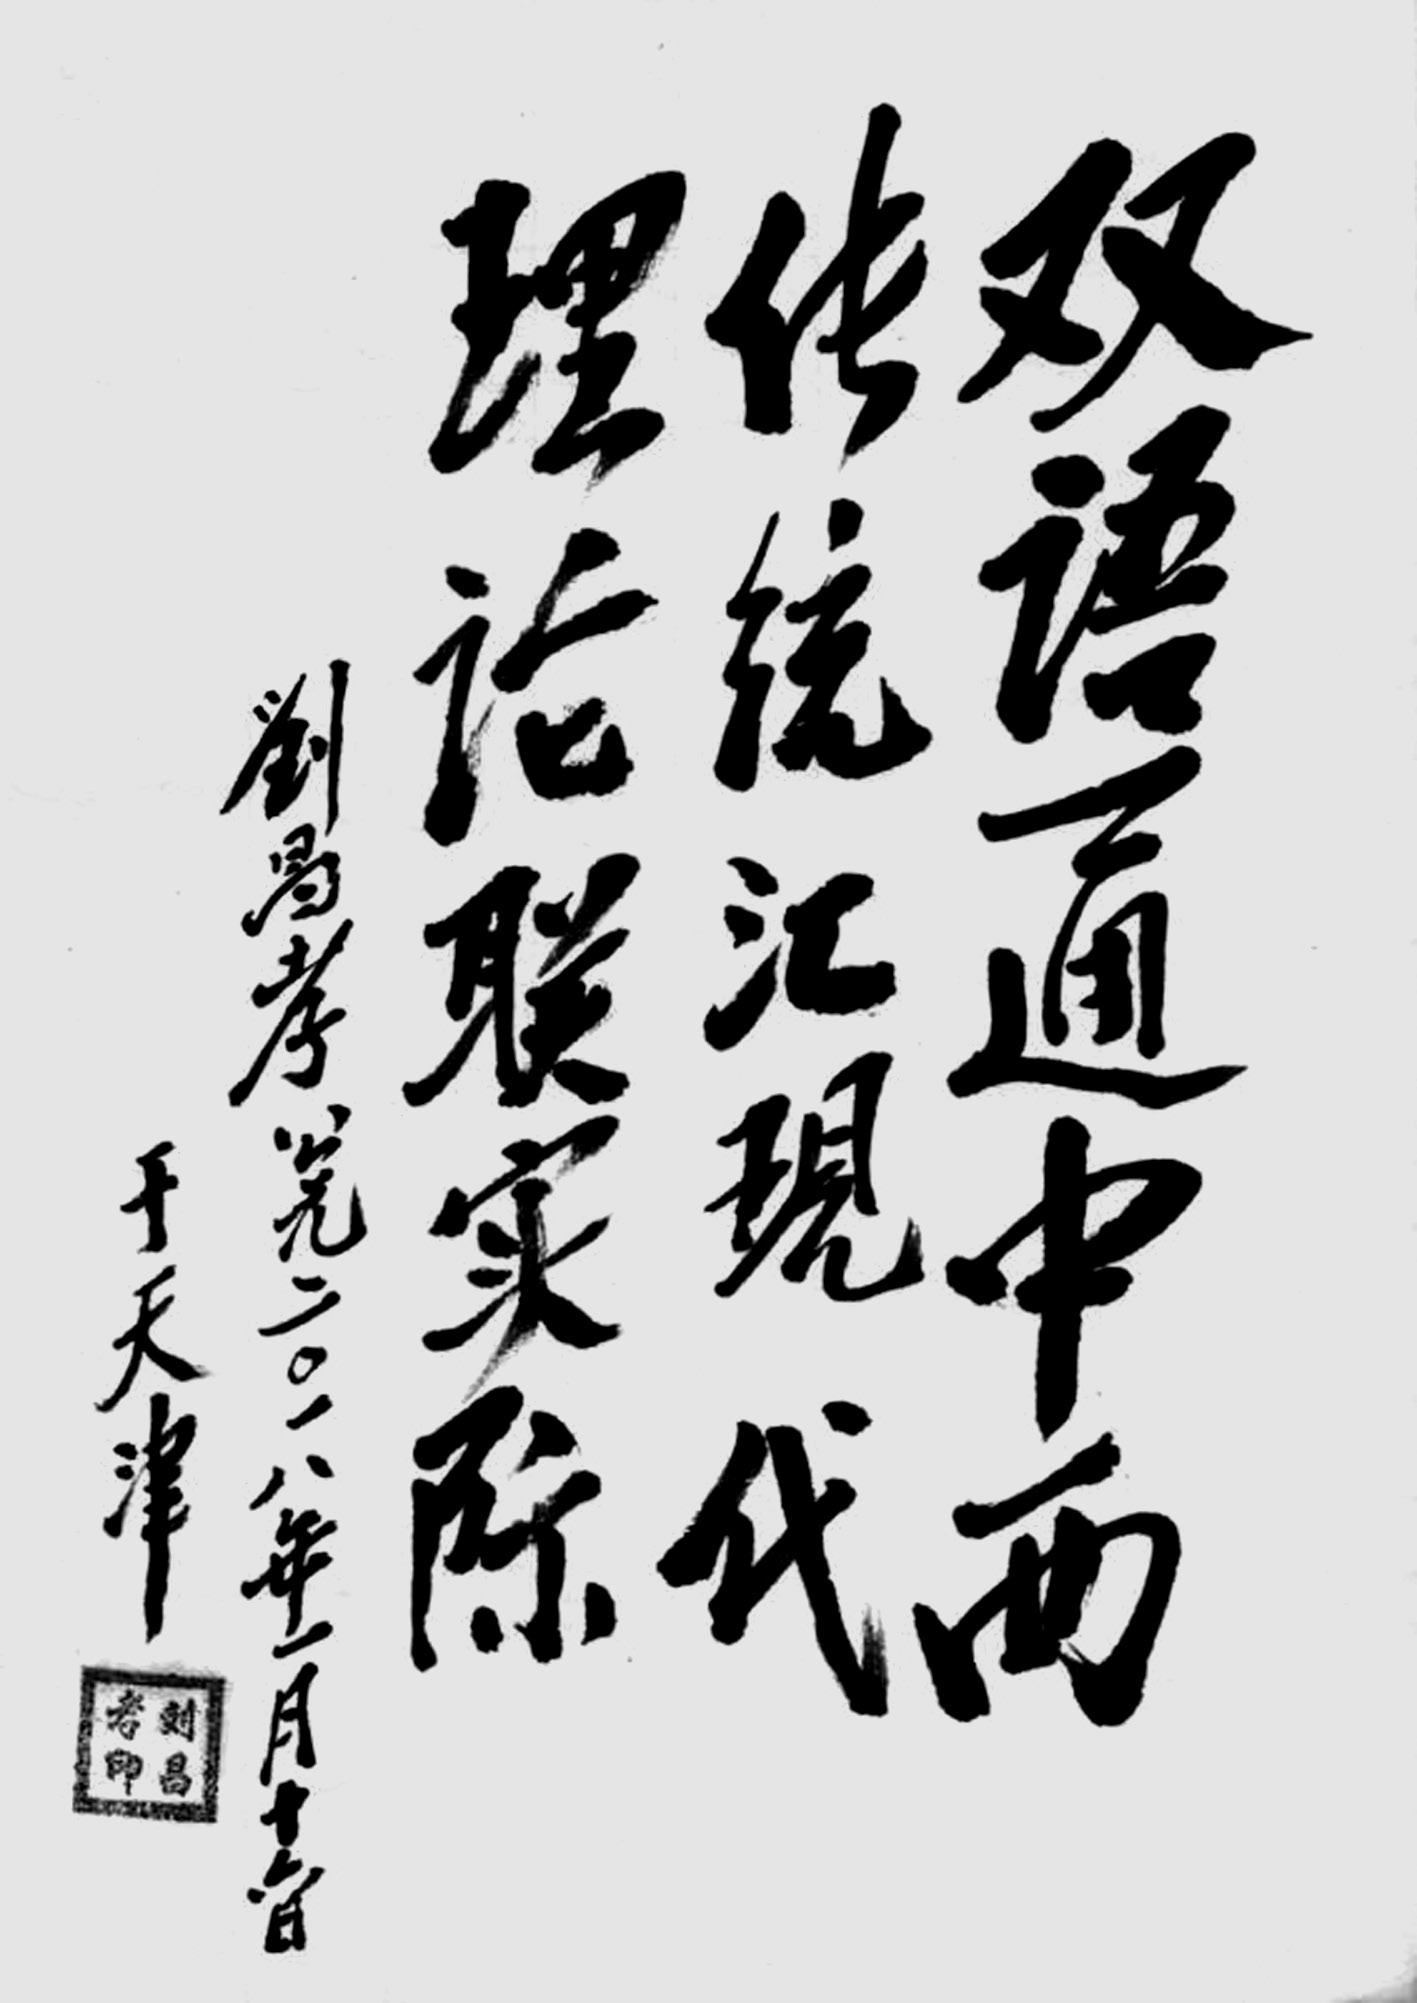 双语通中西
传统汇现代
理论联实际
劉昌孝 公元二〇一八年一月十六日
于天津
刘昌
孝印